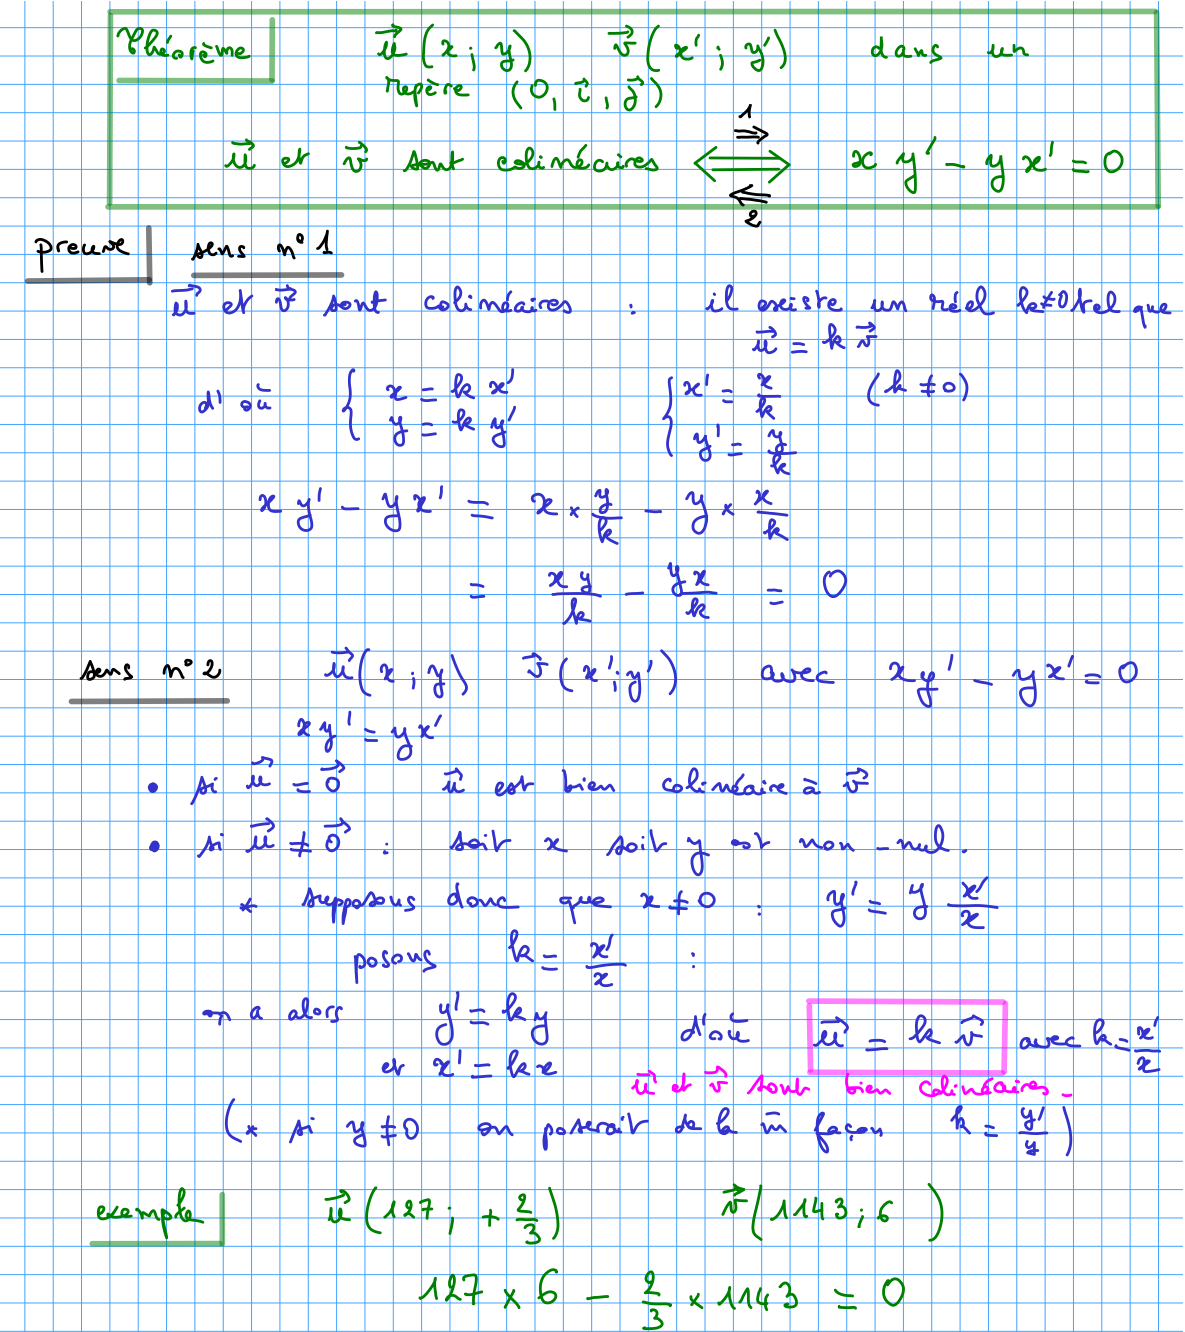 Théorème u⃗ (x ; y) v⃗ (x' ; y') dans un
repère (O, i⃗, j⃗)
1
u⃗ et v⃗ sont colinéaires ⟺ x y' - y x' = 0
2
preuve sens n° 1
u⃗ et v⃗ sont colinéaires : il existe un réel k≠0 tel que
u⃗ = k v⃗
d'où { x = k x' { x' = x/k (k ≠ 0)
y = k y' y' = y/k
x y' - y x' = x × y/k - y × x/k
= xy/k - yx/k = 0
sens n° 2 u⃗ (x ; y) v⃗ (x' ; y') avec xy' - yx' = 0
xy' = yx'
• si u⃗ = 0⃗ u⃗ est bien colinéaire à v⃗
• si u⃗ ≠ 0⃗ : soit x soit y est non-nul.
* supposons donc que x ≠ 0 : y' = y x'/x
posons k = x'/x :
on a alors y' = k y d'où u⃗ = k v⃗ avec k = x'/x
et x' = k x
u⃗ et v⃗ sont bien colinéaires.
(* si y ≠ 0 on poserait de la m̄ façon k = y'/y)
exemple u⃗ (127 ; + 2/3) v⃗ (1143 ; 6)
127 × 6 - 2/3 × 1143 = 0